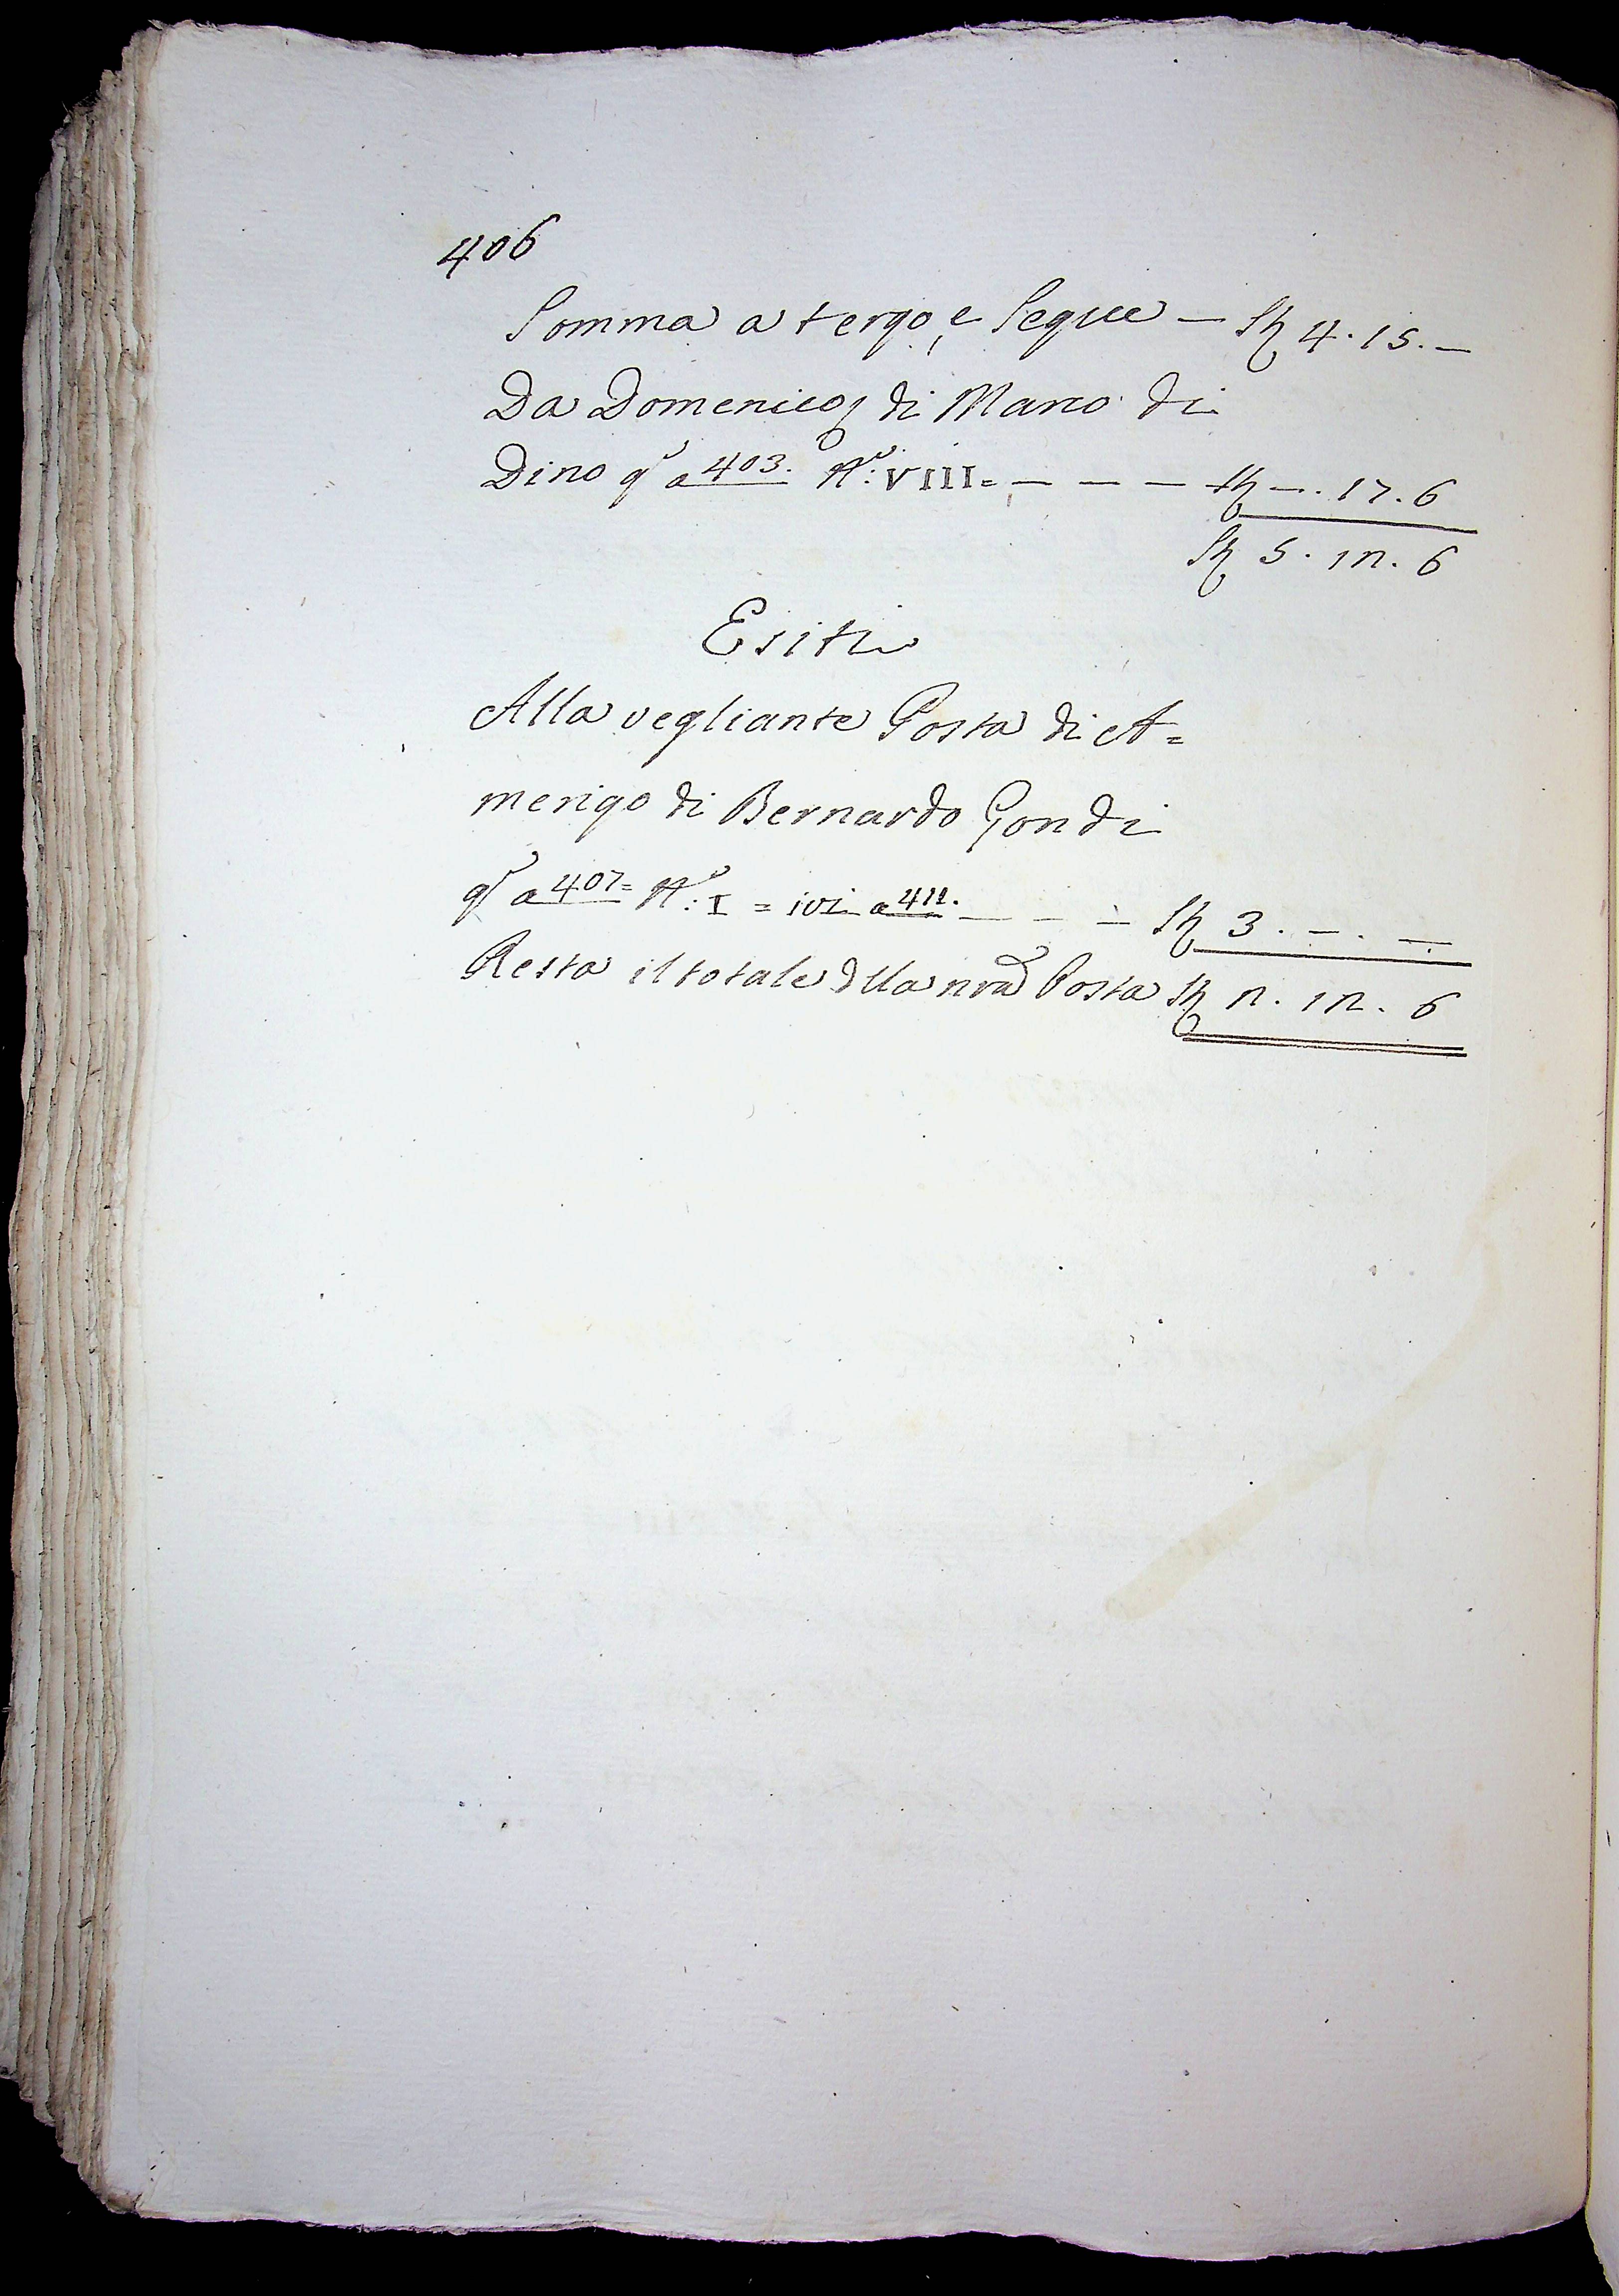 406
Somma a tergo, e Segue — 4. 15. —
Da Domenico di Marco di
Dino qº a 403. Nº: VIII = — — — — —. 17. 6
5. 12. 6
Esiti
Alla vegliante Posta di A=
merigo di Bernardo Gondi
qº a 407 = Nº: I = ivi a — — — 3. —. —
Resta il totale dlla nra Posta 2. 12. 6